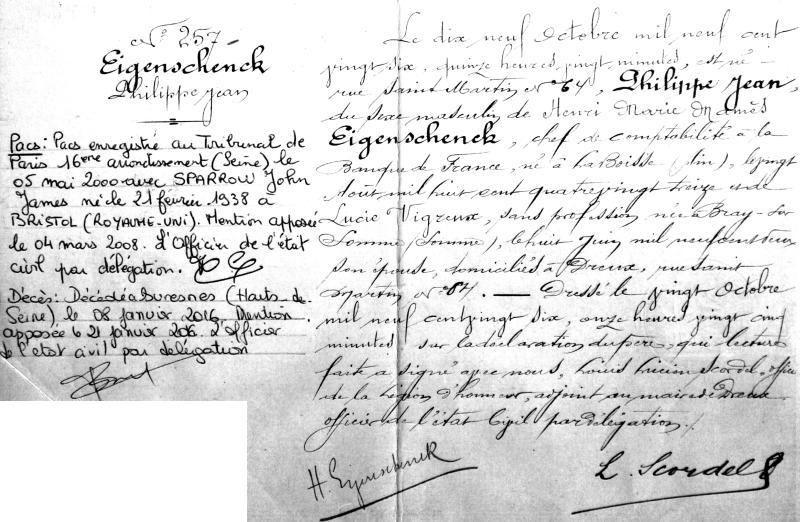 N° 257 -
Eigenschenck
Philippe Jean
Pacs: Pacs enregistré au Tribunal de
Paris 16eme arrondissement (Seine) le
05 mai 2000 avec SPARROW John
James né le 21 février 1938 à
BRISTOL (ROYAUME-UNI). Mention apposée
le 04 mars 2008. L'Officier de l'état
civil par délégation.
Décès: Décédé à Suresnes (Hauts-de-
Seine) le 08 janvier 2016. Mention
apposée le 21 janvier 2016. L'Officier
de l'état civil par délégation
Le dix neuf Octobre mil neuf cent
vingt six, quinze heures, vingt minutes, est né -
rue Saint Martin N° 64, Philippe Jean,
du sexe masculin de Henri Marie Mamès
Eigenschenck, chef de comptabilité à la
Banque de France, né à La Boisse (Ain), le vingt
Août mil huit cent quatre vingt treize et de
Lucie Vigreux, sans profession née à Bray-sur
Somme (Somme), le huit Juin mil neuf cent deux
son épouse, domiciliés à Dreux, rue Saint
Martin N° 64. — Dressé le vingt Octobre
mil neuf cent vingt six, onze heures vingt cinq
minutes sur la déclaration du père, qui lecture
faite a signé avec nous, Louis Lucien Scordel, officier
de la légion d'honneur, adjoint au maire de Dreux
officier de l'état Civil par délégation ./.
H. Eigenschenck
L. Scordel